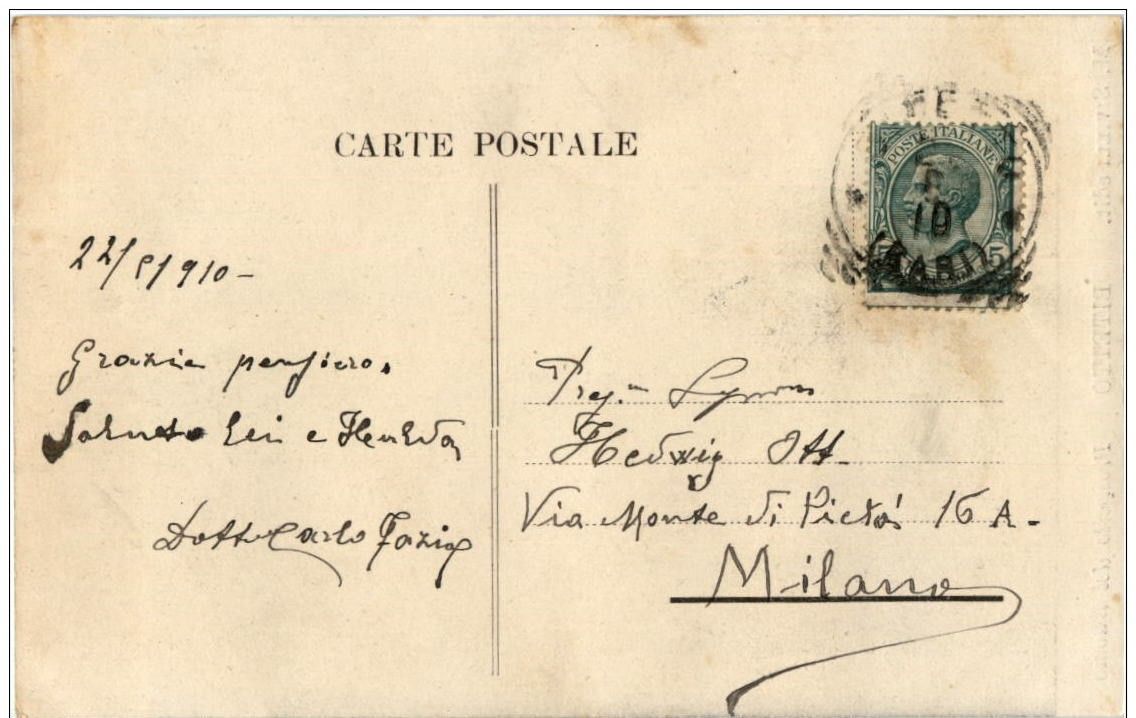 CARTE POSTALE
POSTE ITALIANE
10
(BARI)
5
22/5/910 -
Grazie pensiero.
Saluto Lei e
Dott. Carlo Fazio
Preg.ma
Hedwig Ott.
Via Monte di Pietà 16 A.
Milano
BITETTO